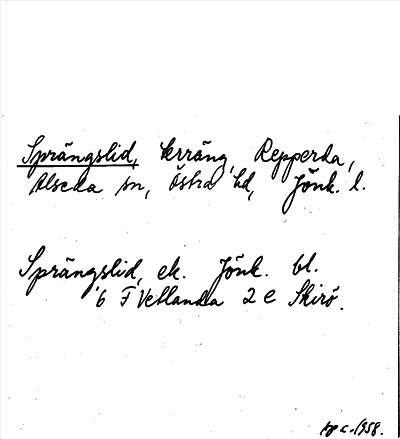 Sprängslid, terräng, Repperda,
Alseda sn, Östra hd, Jönk. l.
Sprängslid, ek. Jönk. bl.
6 F Vetlanda 2 e Skirö.
c. 1958.